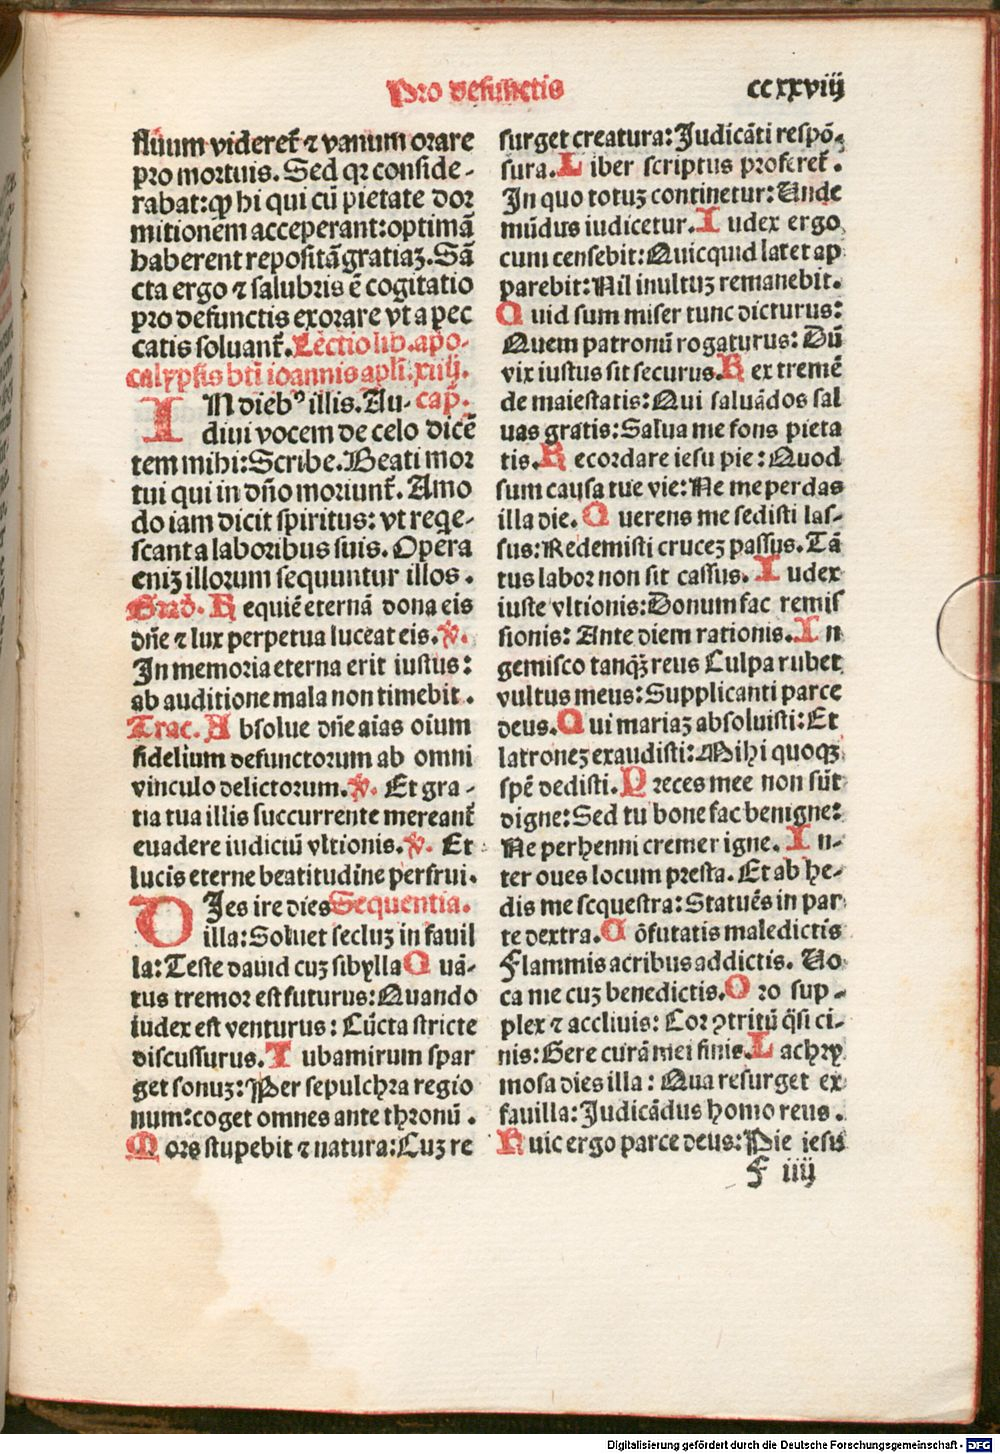 Pro defunctis
ccxxviij
fluum videret̃ ⁊ vanum orare
pro mortuis. Sed qꝛ conside-
rabat: ꝙ hi qui cũ pietate dor
mitionem acceperant: optimã
haberent repositã gratiaꝫ. Sã
cta ergo ⁊ salubris ẽ cogitatio
pro defunctis exorare vt a pec
catis soluant̃. Lectio lib. apo-
calypsis bti ioannis apli. xiiij.
IN dieb⁹ illis. Au- cap.
diui vocem de celo dicẽ
tem mihi: Scribe. Beati mor
tui qui in dño moriunt̃. Amo
do iam dicit spiritus: vt reqe-
scant a laboribus suis. Opera
eniꝫ illorum sequuntur illos.
Grad. Requiẽ eternã dona eis
dñe ⁊ lux perpetua luceat eis. ℣.
In memoria eterna erit iustus:
ab auditione mala non timebit.
Trac. Absolue dñe aias oium
fidelium defunctorum ab omni
vinculo delictorum. ℣. Et gra-
tia tua illis succurrente mereant̃
euadere iudiciũ vltionis. ℣. Et
lucis eterne beatitudine perfrui.
DJes ire dies Sequentia.
illa: Soluet secluꝫ in fauil
la: Teste dauid cuꝫ sibylla Quã-
tus tremor est futurus: Quando
iudex est venturus: Cũcta stricte
discussurus. Tubamirum spar
get sonuꝫ: Per sepulchra regio
num: coget omnes ante thronũ.
Mors stupebit ⁊ natura: Cuꝫ re
surget creatura: Judicãti respõ-
sura. Liber scriptus proferet̃.
In quo totuꝫ continetur: Unde
mũdus iudicetur. Iudex ergo
cum censebit: Quicquid latet ap
parebit: Nil inultuꝫ remanebit.
Quid sum miser tunc dicturus:
Quem patronũ rogaturus: Dũ
vix iustus sit securus. Rex tremẽ
de maiestatis: Qui saluãdos sal
uas gratis: Salua me fons pieta
tis. Recordare iesu pie: Quod
sum causa tue vie: Ne me perdas
illa die. Querens me sedisti las-
sus: Redemisti cruceꝫ passus. Tã
tus labor non sit cassus. Iudex
iuste vltionis: Donum fac remis
sionis: Ante diem rationis. In
gemisco tanqꝫ reus Culpa rubet
vultus meus: Supplicanti parce
deus. Qui mariaꝫ absoluisti: Et
latroneꝫ exaudisti: Mihi quoqꝫ
spẽ dedisti. Preces mee non sũt
digne: Sed tu bone fac benigne:
Ne perhenni cremer igne. In-
ter oues locum presta. Et ab he-
dis me sequestra: Statuẽs in par
te dextra. Cõfutatis maledictis
Flammis acribus addictis. Uo
ca me cuꝫ benedictis. Oro sup-
plex ⁊ accliuis: Cor ꝯtritũ q̃si ci-
nis: Gere curã mei finis. Lachry
mosa dies illa: Qua resurget ex
fauilla: Judicãdus homo reus.
Huic ergo parce deus: Pie iesu
F iiij
Digitalisierung gefördert durch die Deutsche Forschungsgemeinschaft - DFG